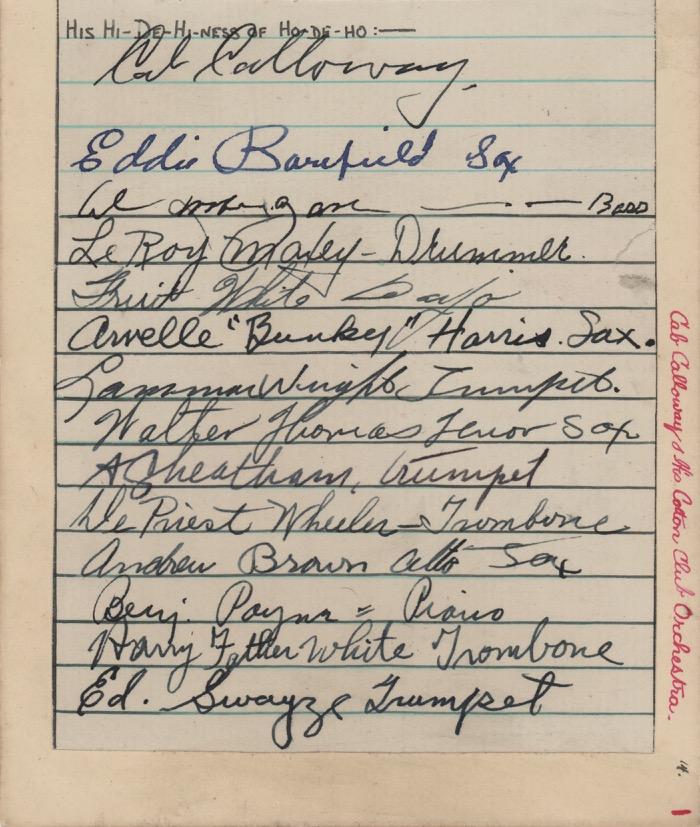 HIS HI-DE-HI-NESS OF HO-DE-HO:—
Cab Calloway.
Eddie Barefield Sax
Al Morgan — - — Bass
LeRoy Maxey - Drummer.
Fruit White Banjo
Arvelle "Bunky" Harris. Sax.
Lammar Wright Trumpet.
Walter Thomas Tenor Sax
A Cheatham, trumpet
De Priest Wheeler - Trombone
Andrew Brown alto Sax
Benj. Payne = Piano
Harry Father White Trombone
Ed. Swayze Trumpet
Cab Calloway & His Cotton Club Orchestra.
14.
1